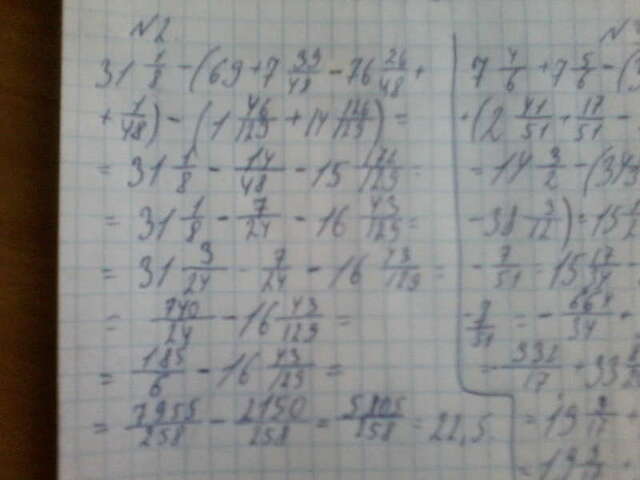 N2.
31 1/8 - (69 + 7 39/48 - 76 26/48 +
+ 1/48) - (1 46/129 + 14 126/129) =
= 31 1/8 - 14/48 - 15 172/129 =
= 31 1/8 - 7/24 - 16 43/129 =
= 31 3/24 - 7/24 - 16 43/129 =
= 740/24 - 16 43/129 =
= 185/6 - 16 43/129 =
= 7955/258 - 2150/258 = 5805/258 = 22,5.
7 4/6 + 7 5/6 - (3
- (2 41/51 + 17/51 -
= 14 3/2 - (34
- 38 3/12) = 15 1/2
- 7/51 = 15 17/34
= - 664/34
= 332/17 - 33
= 19 9/17
= 19 9/17